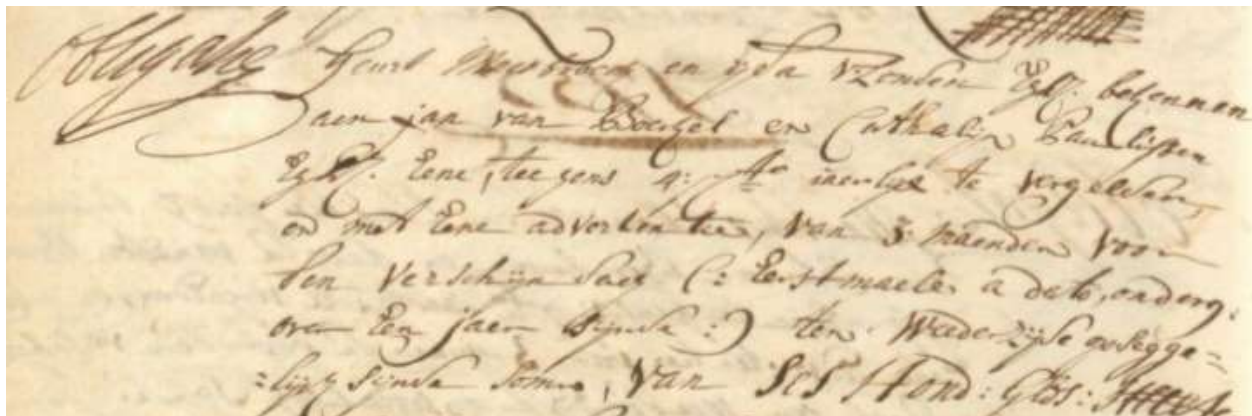 Obligatie Geurt en ijda Zenden Eghl: bekennen
aen jan van Boexel en Cathalijn Paulissen
Eghl: Eene, tee gens 4: p:r Cto iaerlijx te vergelden,
en met Eene advertentie, van 3 maenden voor
den verschijn dagh (: Eerstmaele a dato, onderg.
over Een jaer sijnde :) ten weederzijde opsegge=
=lijke sijnde somme, van Ses Hond: Glds: